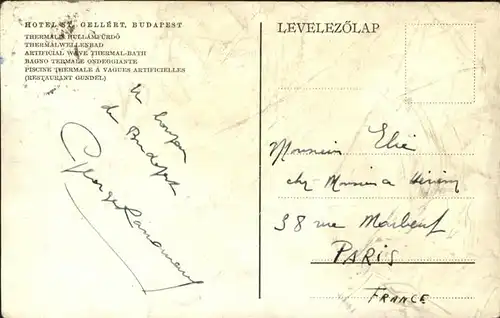 HOTEL ST. GELLÉRT, BUDAPEST
THERMÁLIS HULLÁMFÜRDŐ
THERMALWELLENBAD
ARTIFICIAL WAVE THERMAL-BATH
BAGNO TERMALE ONDEGGIANTE
PISCINE THERMALE A VAGUES ARTIFICIELLES
(RESTAURANT GUNDEL)
de Budapest
George
LEVELEZŐLAP
Monsieur Elie
chez Monsieur
38 rue Marbeuf
PARIS
FRANCE